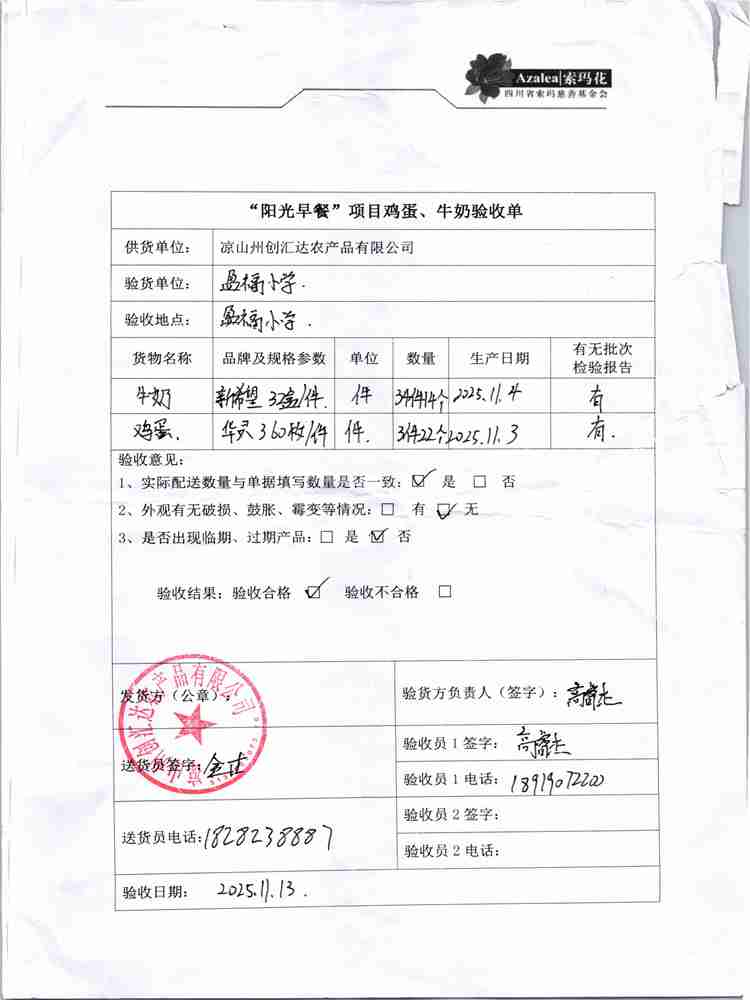 Azalea|索玛花
四川省索玛慈善基金会
“阳光早餐”项目鸡蛋、牛奶验收单
供货单位： 凉山州创汇达农产品有限公司
验货单位： 盈福小学.
验收地点： 盈福小学.
货物名称 品牌及规格参数 单位 数量 生产日期 有无批次
检验报告
牛奶 新希望 32盒/件. 件 34件14个 2025.11.4 有
鸡蛋. 华灵 360枚/件 件. 3件22个 2025.11.3 有.
验收意见：
1、实际配送数量与单据填写数量是否一致：☑ 是 □ 否
2、外观有无破损、鼓胀、霉变等情况：□ 有 ☑ 无
3、是否出现临期、过期产品：□ 是 ☑ 否
验收结果：验收合格 ☑ 验收不合格 □
发货方（公章）： 验货方负责人（签字）：
验收员1签字：
送货员签字：
验收员1电话： 18919072200
验收员2签字：
送货员电话：18282388887
验收员2电话：
验收日期： 2025.11.13.